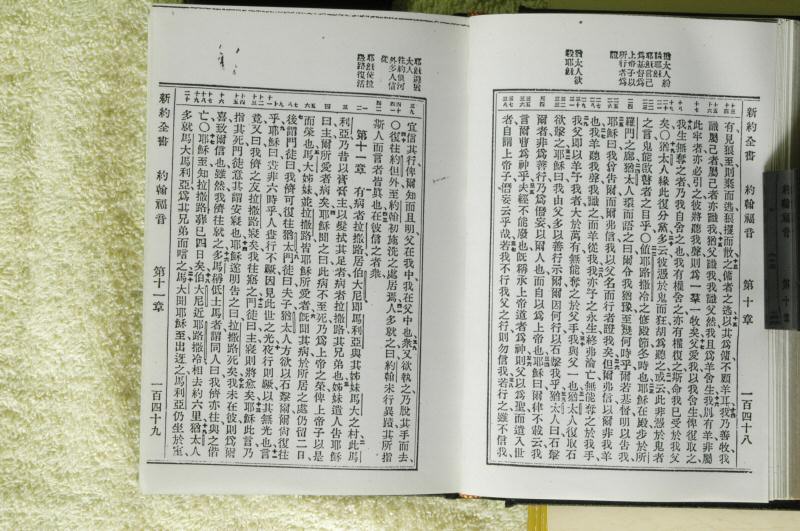 新約全書 約翰福音 第十章 一百四十八
猶太人欲
殺耶穌
有見狼至則棄而逃狼攫而散之傭者之逃以其爲傭不顧羊耳我乃善牧我
識屬己者屬己者亦識我猶父識我我識父然且我爲羊舍生我別有羊非屬
此牢者亦必引之彼將聽我聲則爲一羣一牧矣父愛我以我舍生俾復取之
我生無奪之者乃我自舍之也我有權舍之亦有權復之斯命我已受於我父
矣〇猶太人緣此復分黨多云彼憑於鬼而狂胡爲聽之或云此非憑於鬼者
之言鬼能啟瞽者之目乎〇値耶路撒冷之修殿節冬時也耶穌在殿步於所
羅門之廊猶太人環而語之曰爾令我猶豫至幾何時乎爾若基督明以告我
耶穌曰我曾告爾而爾弗信我以父名而行者證我矣但爾弗信以爾非我羊
也我羊聽我聲我識之而彼從我我亦予之永生終弗淪亡無能奪之於我手
我父卽以羊予我者大於萬有無能奪之於父手我與父一也猶太人復取石
欲擊之耶穌曰我由父多以善行示爾因何行以石擊我乎猶太人曰石擊
爾者非爲善行乃爲僭妄以爾人也而自以爲上帝也耶穌曰爾律不載云我
言爾曹爲神乎夫經不能廢也旣稱承上帝道者爲神則父以爲聖而遣入世
者自謂上帝子僭妄云乎哉若我不行我父之行則勿信我若行之雖不信我
宜信其行俾爾知而且明父在我中我在父中也衆又欲執之乃脫其手而去
〇復往約但外至約翰初施洗之處居焉人多就之曰約翰未行異蹟其所指
斯人而言者皆眞也在彼信之者衆
第十一章 有病者拉撒路居伯大尼卽馬利亞與其姊妹馬大之村此馬
利亞乃昔以香膏膏主以髮拭其足者病者拉撒路其兄弟也姊妹遣人告耶穌
曰主所愛者病矣耶穌聞之曰此病不至死乃爲上帝之榮俾上帝子以是
而榮也馬大姊妹並拉撒路皆耶穌所愛者旣聞其病於所居之處仍留二日
後謂門徒曰我儕可復往猶太門徒曰夫子猶太人方欲以石擊爾爾尚復往
乎耶穌曰晝非六時乎人晝行不蹶因見此世之光夜行則蹶以其無光也言
竟又曰我儕之友拉撒路寢矣我往寤之門徒曰主寢則將愈矣耶穌此言乃
指其死門徒意其謂安寢也耶穌遂明告之曰拉撒路死矣我未在彼則爲爾
喜致爾信也雖然我儕往就之多馬稱低土馬者謂同人曰我儕亦往與之偕
亡〇耶穌至知拉撒路葬已四日矣伯大尼近耶路撒冷相去約六里猶太人
多就馬大馬利亞爲其兄弟而唁之馬大聞耶穌至出迓之馬利亞仍坐於室
耶穌使拉
撒路復活
新約全書 約翰福音 第十一章 一百四十九